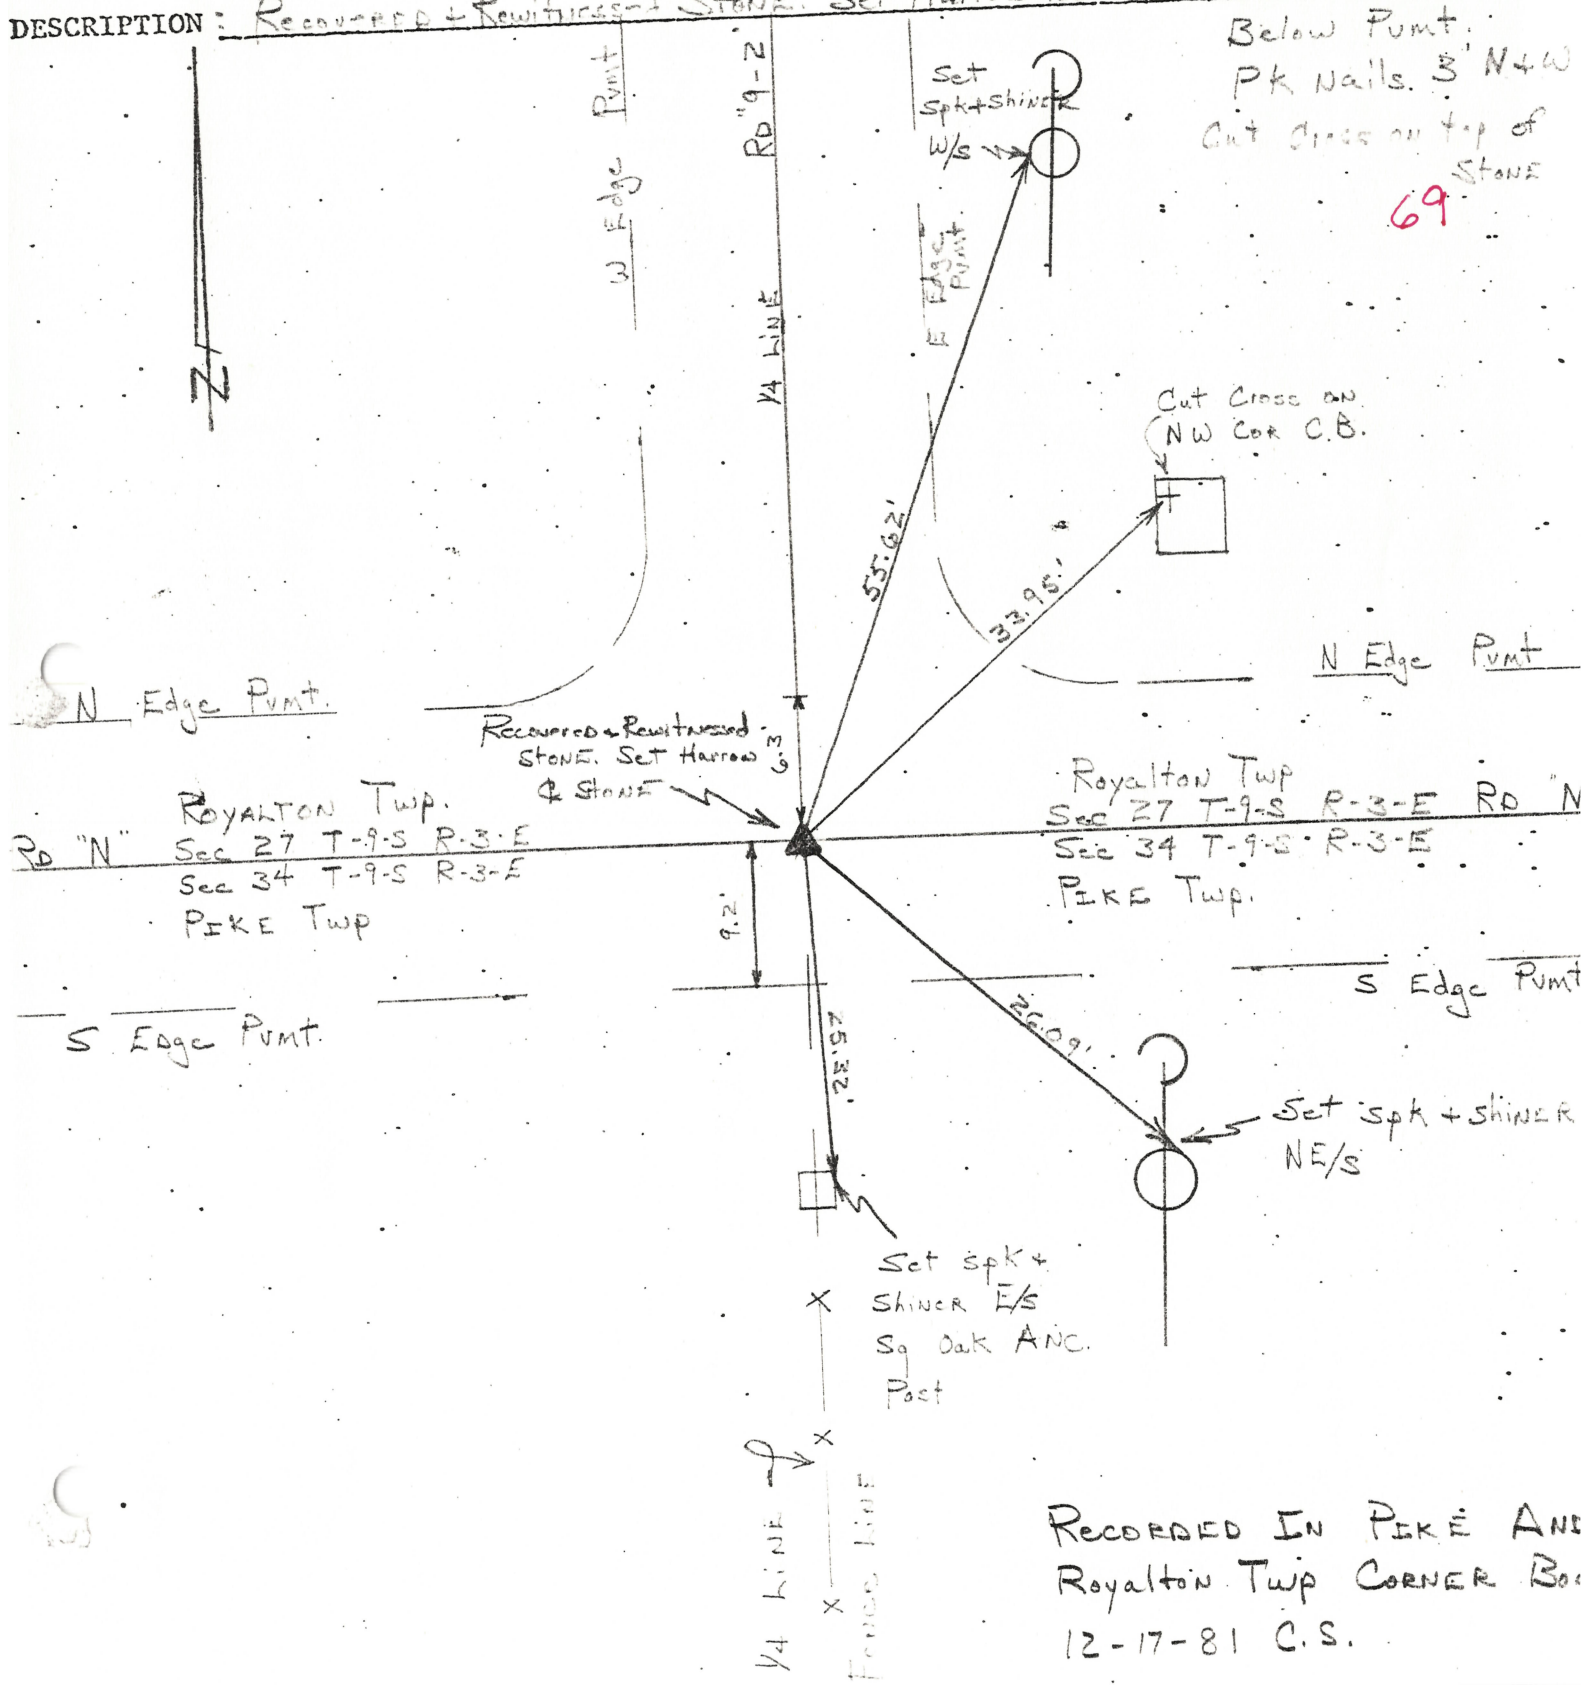 DESCRIPTION: Recovered + Rewitnessed STONE. Set
Below Pvmt.
PK Nails. 3' N+W
Cut Cross on top of
STONE
69
W Edge Pvmt
RD "9-2"
1/4 LINE
Set
Spk+Shiner
W/s
E Edge
Pvmt.
N
Cut Cross on
NW Cor C.B.
55.62'
33.95'
N Edge Pvmt.
N Edge Pvmt
Recovered & Rewitnessed
STONE. Set Harrow
& STONE
6.3
ROYALTON Twp.
Sec 27 T-9-S R-3-E
RD "N"
Sec 34 T-9-S R-3-E
PIKE Twp
Royalton Twp
Sec 27 T-9-S R-3-E RD "N
Sec 34 T-9-S R-3-E
PIKE Twp.
9.2'
S Edge Pvmt.
S Edge Pvmt
25.32'
26.09'
Set spk + shiner
NE/s
Set spk +
Shiner E/s
Sq Oak ANC.
Post
1/4 LINE
FENCE LINE
RECORDED IN PIKE AND
Royalton Twp CORNER Boo
12-17-81 C.S.